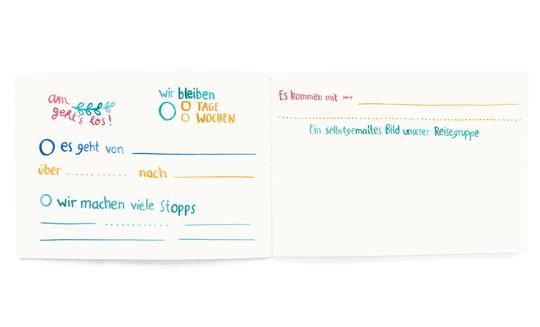 am
geht's los!
wir bleiben
TAGE
WOCHEN
es geht von
über nach
wir machen viele Stopps
Es kommen mit
Ein selbstgemaltes Bild unserer Reisegruppe